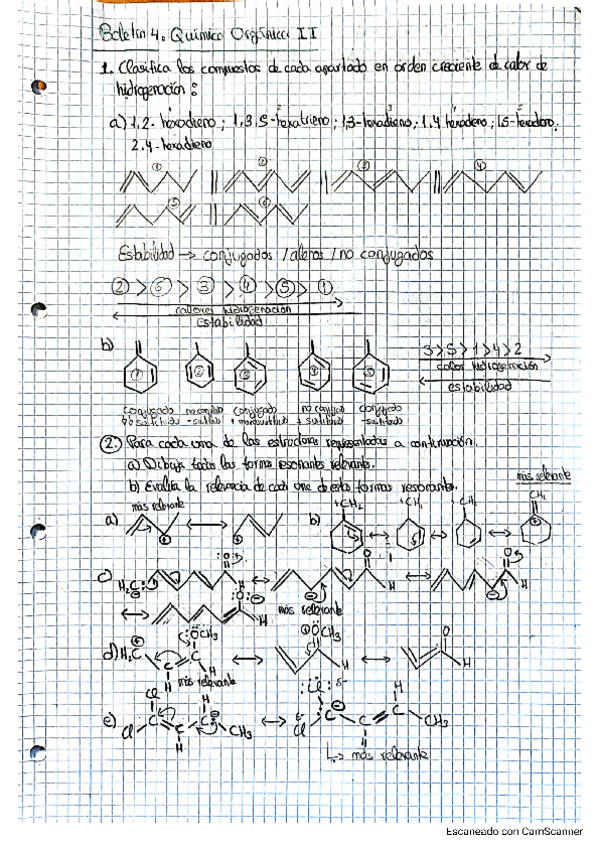 Boletín 4. Química Orgánica II
1. Clasifica los compuestos de cada apartado en orden creciente de calor de
hidrogenación:
a) 1,2-hexadieno; 1,3,5-hexatrieno; 1,3-hexadieno; 1,4 hexadieno; 1,5-hexadieno;
2,4-hexadieno
1 2 3 4
5 6
Estabilidad → conjugados / alenos / no conjugados
2 > 6 > 3 > 4 > 5 > 1
calores hidrogenación
Estabilidad
b) 1 2 3 4 5 3>5>1>4>2
calor hidrogenación
estabilidad
conjugado no conjug conjugado no conjug conjugado
2. Para cada una de las estructuras representadas a continuación.
a) Dibuja todas las formas resonantes relevantes.
b) Evalúa la relevancia de cada una de estas formas resonantes.
más relevante
más relevante
a) b) +CH2 CH2
c) H2C H O
más relevante
d) H2C OCH3 H
más relevante
e) Cl Cl C C C H H CH3
más relevante
Escaneado con CamScanner